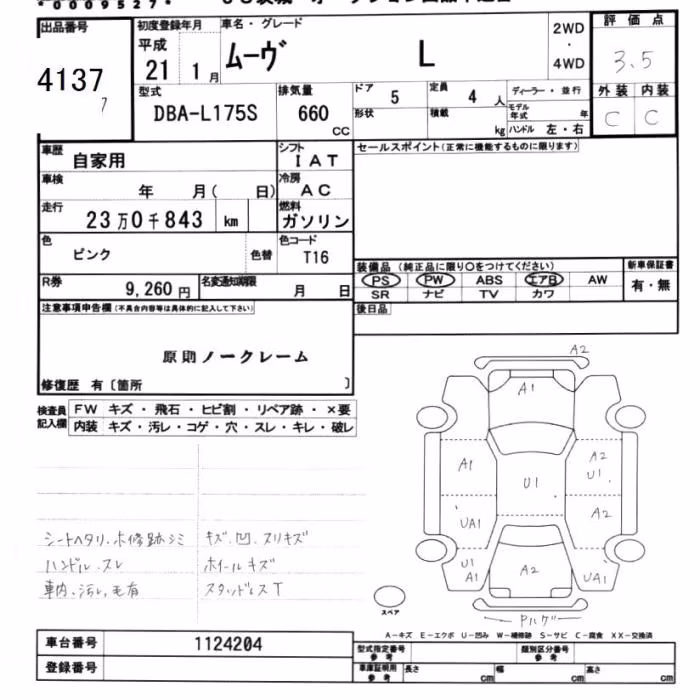 *0009527*
出品番号
4137
7
初度登録年月
平成
21 1 月
車名・グレード
ムーヴ L
2WD
・
4WD
評価点
3.5
外装 内装
C C
型式
DBA-L175S
排気量
660
CC
ドア 5
定員 4 人
ディーラー・並行
形状
積載 kg
モデル年式 年
ハンドル 左・右
車歴
自家用
シフト
IAT
車検
年 月( 日)
冷房
AC
走行
23万0千843 km
燃料
ガソリン
色
ピンク
色替
色コード
T16
R券
9,260円
名変通知期限
月 日
セールスポイント(正常に機能するものに限ります)
装備品 (純正品に限り○をつけてください)
PS PW ABS エアB AW
SR ナビ TV カワ
新車保証書
有・無
後日品
注意事項申告欄(不具合内容等は具体的に記入して下さい)
原則ノークレーム
修復歴 有〔箇所 〕
検査員
記入欄
FW キズ・飛石・ヒビ割・リペア跡・×要
内装 キズ・汚レ・コゲ・穴・スレ・キレ・破レ
シートヘタリ、木修跡シミ
ハンドル スレ
車内、汚レ、毛有
キズ、凹、スリキズ
ホイールキズ
スタッドレスT
A2
A1
A1
A2
U1
U1
UA1
A2
U1
A1
A2
UA1
スペア
A−キズ E−エクボ U−凹み W−補修跡 S−サビ C−腐食 XX−交換済
車台番号
1124204
登録番号
型式指定番号
参考
類別区分番号
参考
車庫証明用
参考
長さ cm
幅 cm
高さ cm